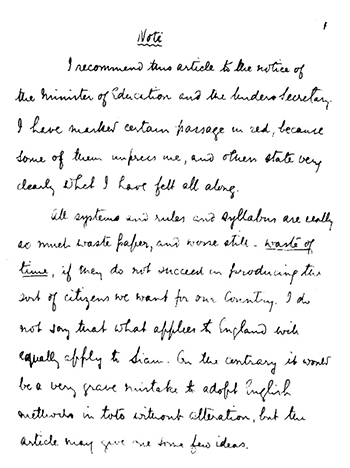 Note
I recommend this article to the notice of
the Minister of Education and the Under Secretary.
I have marked certain passage in red, because
some of them impress me, and others state very
clearly what I have felt all along.
All systems and rules and syllabus are really
so much waste paper, and worse still - waste of
time, if they do not succeed in producing the
sort of citizens we want for our Country. I do
not say that what applies to England will
equally apply to Siam. On the contrary it would
be a very grave mistake to adopt English
methods in toto without alteration, but the
article may give one some few ideas.